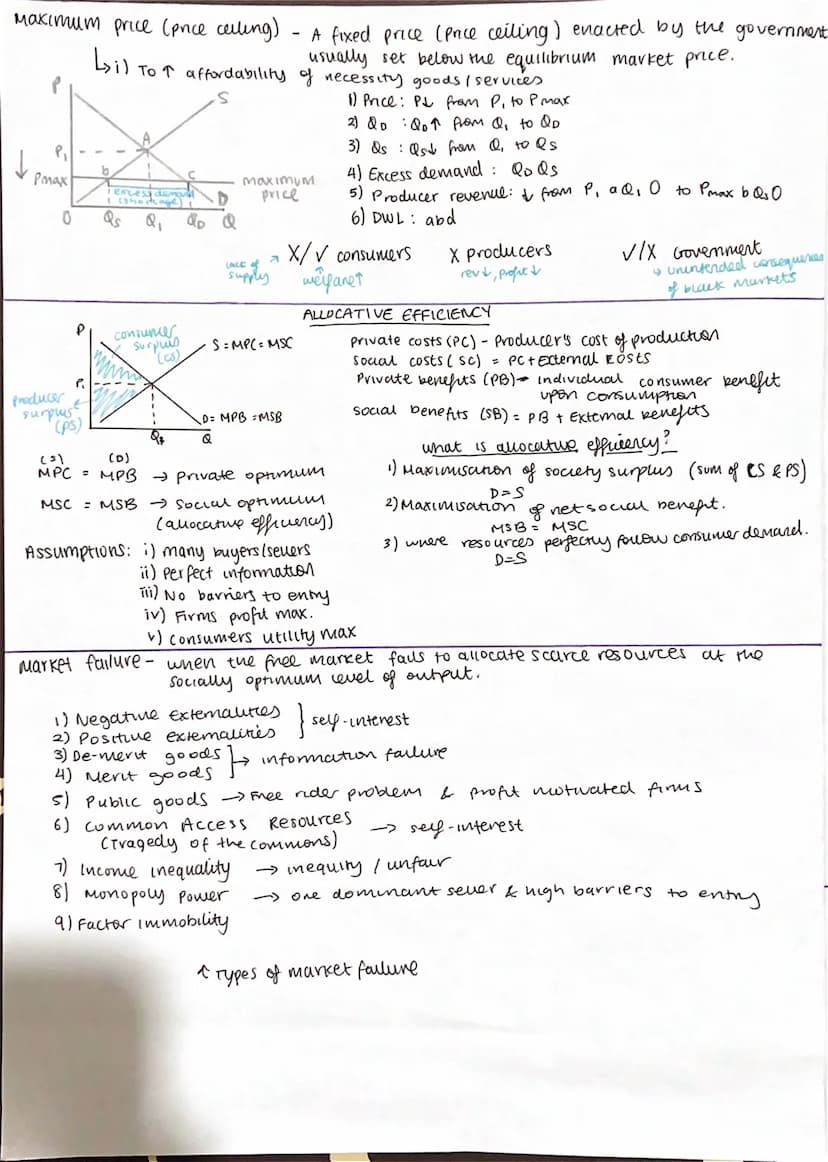 Maximum price (price ceiling) - A fixed price (price ceiling) enacted by the government
usually set below the equilibrium market price.
↳ i) To ↑ affordability of necessity goods/services
P
S
P₁
A
Pmax
b
c
maximum
price
excess demand
(shortage)
D
O Qs Q₁ QD Q
1) Price: P↓ from P₁ to Pmax
2) QD : QD↑ from Q₁ to QD
3) Qs : Qs↓ from Q₁ to Qs
4) Excess demand : QDQs
5) Producer revenue: ↓ from P₁ a Q₁ O to Pmax b Qs O
6) DWL : abd
X/✓ consumers X producers ✓/X Government
lack of
supply
welfare↑
rev↓, profit↓
↳ unintended consequences
of black markets
ALLOCATIVE EFFICIENCY
P
consumer
surplus
(CS)
S=MPC=MSC
P₁
producer
surplus
(PS)
D= MPB =MSB
Q
Private costs (PC) - Producer's cost of production
Social costs (SC) = PC+External costs
Private benefits (PB)- individual consumer benefit
upon consumption
Social benefits (SB) = PB + External benefits
(S) (D)
MPC = MPB → Private optimum
MSC = MSB → Social optimum
(allocative efficiency)
Assumptions: i) many buyers/sellers
ii) Perfect information
iii) No barriers to entry
iv) Firms profit max.
v) consumers utility max
what is allocative efficiency?
1) Maximisation of society surplus (sum of CS & PS)
D=S
2) Maximisation of net social benefit.
MSB = MSC
3) where resources perfectly follow consumer demand.
D=S
Market failure - when the free market fails to allocate scarce resources at the
socially optimum level of output.
1) Negative Externalities
2) Positive externalities
} self-interest
3) De-merit goods
4) Merit goods
}→ information failure
5) Public goods → Free rider problem & profit motivated firms
6) Common Access Resources
(Tragedy of the commons)
→ self-interest
7) Income inequality → inequity / unfair
8) Monopoly Power → one dominant seller & high barriers to entry
9) Factor immobility
↑ Types of market failure